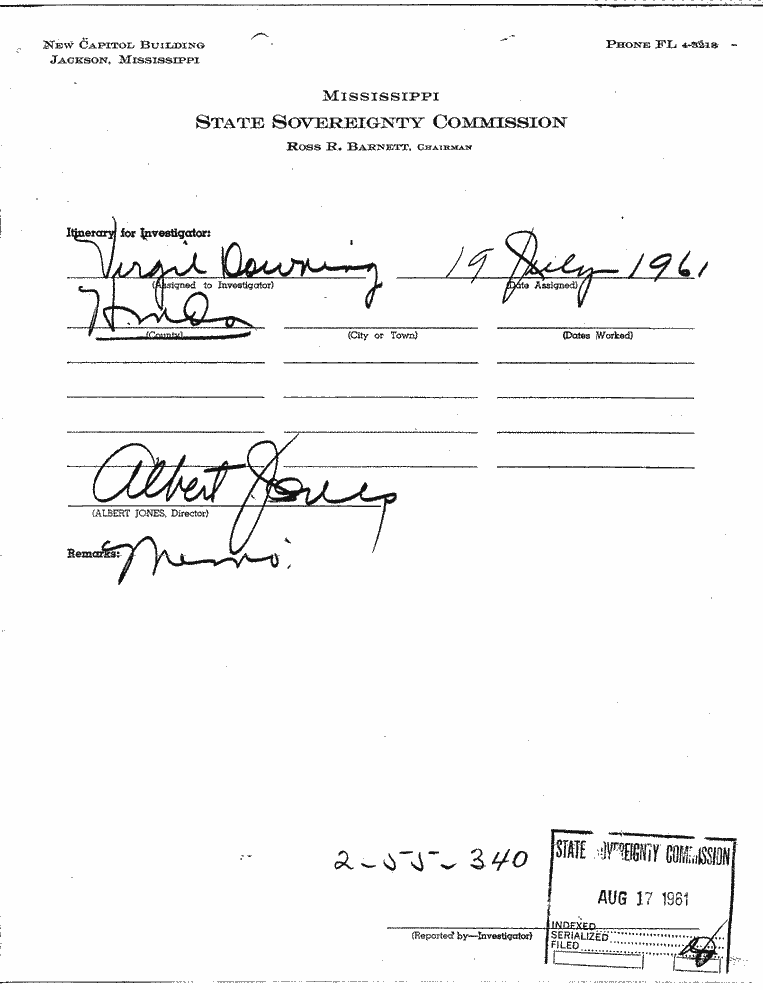 NEW CAPITOL BUILDING
JACKSON, MISSISSIPPI
PHONE FL 4-3218
MISSISSIPPI
STATE SOVEREIGNTY COMMISSION
ROSS R. BARNETT, CHAIRMAN
Itinerary for Investigator:
Virgil Downing 19 July 1961
(Assigned to Investigator) (Date Assigned)
Hinds
(County) (City or Town) (Dates Worked)
Albert Jones
(ALBERT JONES, Director)
Remarks: Memo.
2-55-340
STATE SOVEREIGNTY COMMISSION
AUG 17 1961
INDEXED
SERIALIZED
FILED
(Reported by—Investigator)